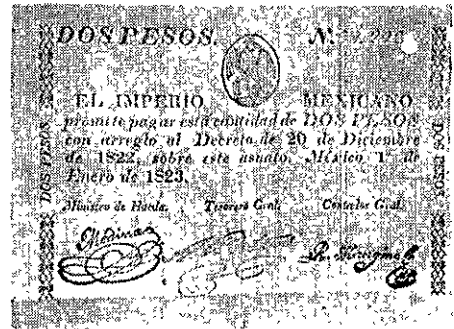 DOS PESOS. N.
EL IMPERIO MEXICANO
promete pagar esta cantidad de DOS PESOS
con arreglo al Decreto de 20 de Diciembre
de 1822, sobre este asunto. México 1º de
Enero de 1823.
Ministro de Hacda. Tesorero Gral. Contador Gral.
DOS PESOS
DOS PESOS